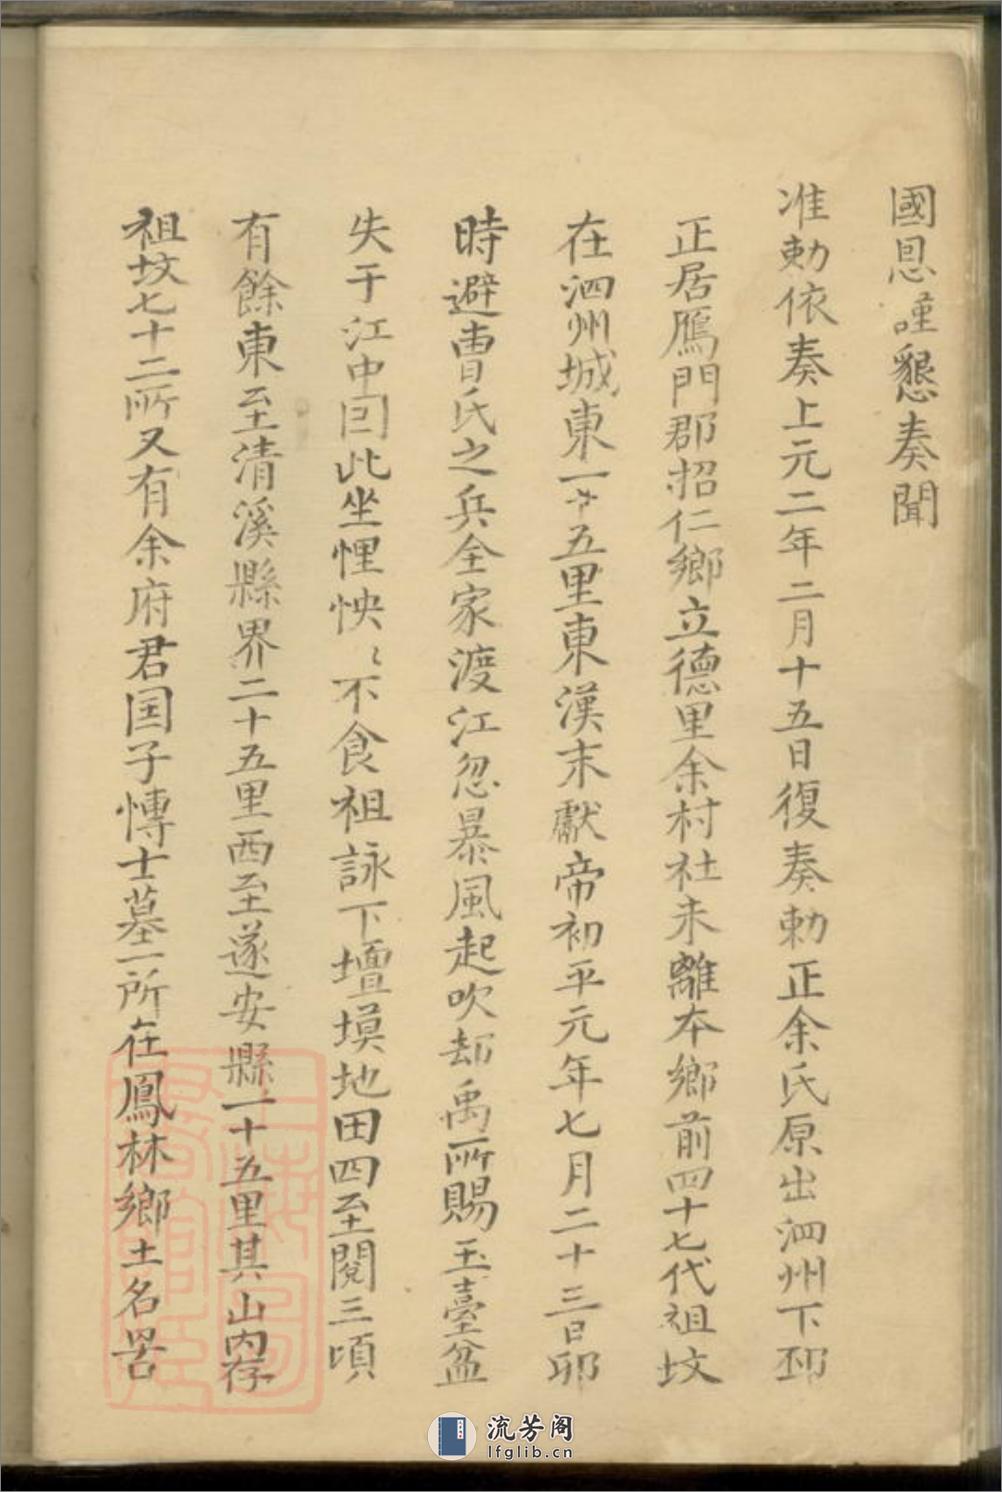 國恩謹懇奏聞
准勅依奏上元二年二月十五日復奏勅正余氏原出泗州下邳
正居鴈門郡招仁鄉立德里余村社未離本鄉前四十七代祖坟
在泗州城東一十五里東漢末獻帝初平元年七月二十三日卯
時避曹氏之兵全家渡江忽暴風起吹却禹所賜玉臺盆
失于江中囙此坐悝怏〻不食祖詠下壇塻地田四至閱三頃
有餘東至清溪縣界二十五里西至遂安縣一十五里其山內存
祖坟七十二所又有余府君国子愽士墓一所在鳳林鄉土名
流芳阁
lfglib.cn